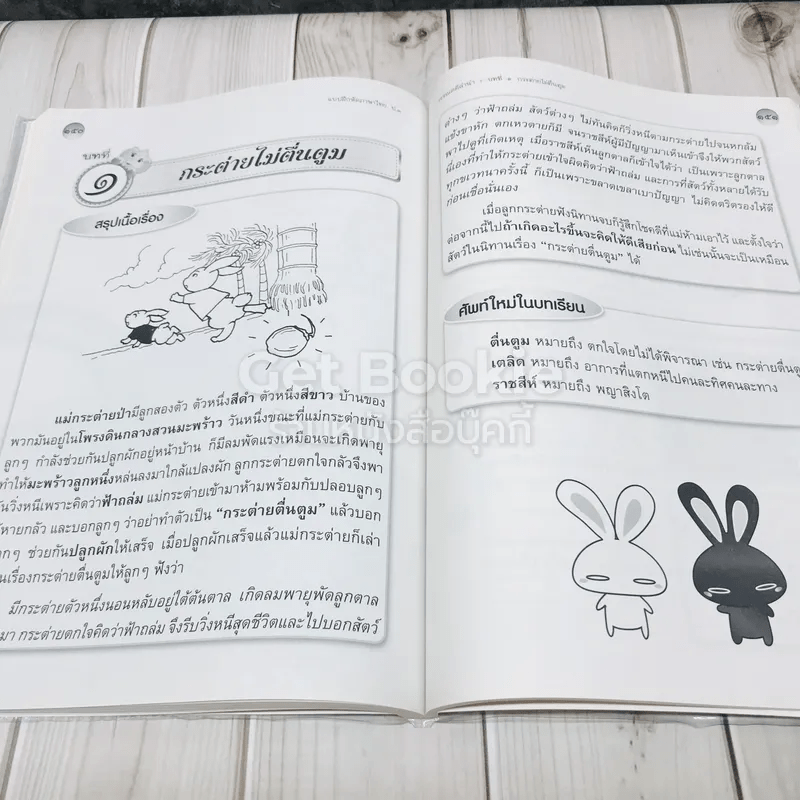 แบบฝึกหัดภาษาไทย ป.๓
๑๕๐
บทที่
๑
กระต่ายไม่ตื่นตูม
สรุปเนื้อเรื่อง
แม่กระต่ายป่ามีลูกสองตัว ตัวหนึ่งสีดำ ตัวหนึ่งสีขาว บ้านของ
พวกมันอยู่ในโพรงดินกลางสวนมะพร้าว วันหนึ่งขณะที่แม่กระต่ายกับ
ลูกๆ กำลังช่วยกันปลูกผักอยู่หน้าบ้าน ก็มีลมพัดแรงเหมือนจะเกิดพายุ
ทำให้มะพร้าวลูกหนึ่งหล่นลงมาใกล้แปลงผัก ลูกกระต่ายตกใจกลัวจึงพา
กันวิ่งหนีเพราะคิดว่าฟ้าถล่ม แม่กระต่ายเข้ามาห้ามพร้อมกับปลอบลูกๆ
ให้หายกลัว และบอกลูกๆ ว่าอย่าทำตัวเป็น “กระต่ายตื่นตูม” แล้วบอก
ลูกๆ ช่วยกันปลูกผักให้เสร็จ เมื่อปลูกผักเสร็จแล้วแม่กระต่ายก็เล่า
นิทานเรื่องกระต่ายตื่นตูมให้ลูกๆ ฟังว่า
มีกระต่ายตัวหนึ่งนอนหลับอยู่ใต้ต้นตาล เกิดลมพายุพัดลูกตาล
มา กระต่ายตกใจคิดว่าฟ้าถล่ม จึงรีบวิ่งหนีสุดชีวิตและไปบอกสัตว์
๑๕๑
ต่างๆ ว่าฟ้าถล่ม สัตว์ต่างๆ ไม่ทันคิดก็วิ่งหนีตามกระต่ายไปจนหกล้ม
แข้งขาหัก ตกเหวตายก็มี จนราชสีห์ผู้มีปัญญามาเห็นเข้าจึงให้พวกสัตว์
พาไปดูที่เกิดเหตุ เมื่อราชสีห์เห็นลูกตาลก็เข้าใจได้ว่า เป็นเพราะลูกตาล
นี่เองที่ทำให้กระต่ายเข้าใจผิดคิดว่าฟ้าถล่ม และการที่สัตว์ทั้งหลายได้รับ
ทุกขเวทนาครั้งนี้ ก็เป็นเพราะขลาดเขลาเบาปัญญา ไม่คิดตริตรองให้ดี
ก่อนเชื่อนั่นเอง
เมื่อลูกกระต่ายฟังนิทานจบก็รู้สึกโชคดีที่แม่ห้ามเอาไว้ และตั้งใจว่า
ต่อจากนี้ไปถ้าเกิดอะไรขึ้นจะคิดให้ดีเสียก่อน ไม่เช่นนั้นจะเป็นเหมือน
สัตว์ในนิทานเรื่อง “กระต่ายตื่นตูม” ได้
ศัพท์ใหม่ในบทเรียน
ตื่นตูม หมายถึง ตกใจโดยไม่ได้พิจารณา เช่น กระต่ายตื่นตูม
เตลิด หมายถึง อาการที่แตกหนีไปคนละทิศคนละทาง
ราชสีห์ หมายถึง พญาสิงโต
Get Bookie
ร้านหนังสือบุ๊คกี้